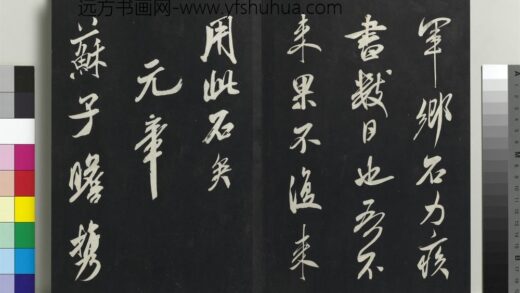 远方书画网-www.yfshuhua.com
軍鄉石力疾
書數日也吾不
来果不復来
用此石矣
元章
蘇子瞻携